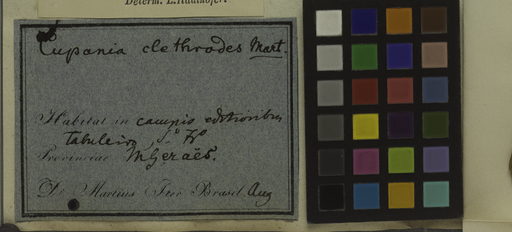 Determ. L. Radlkofer.
Cupania clethrodes Mart.
Habitat in campis editioribus
Tabuleiro,
Provinciae MGeraës.
D. Martius Iter Brasil Aug